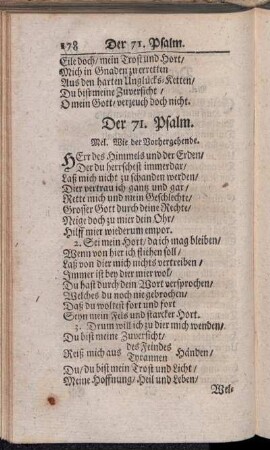 178 Der 71. Psalm.
Eile doch/ mein Trost und Hort/
Mich in Gnaden zu erretten
Aus den harten Unglücks-Ketten/
Du bist meine Zuversicht/
O mein Gott/ verzeuch doch nicht.
Der 71. Psalm.
Mel. Wie der Vorhergehende.
HErr des Himmels und der Erden/
Der du herrschest immerdar/
Laß mich nicht zu schanden werden/
Dier vertrau ich gantz und gar/
Rette mich und mein Geschlechte/
Grosser Gott durch deine Rechte/
Neige doch zu mier dein Ohr/
Hilff mier wiederum empor.
2. Sei mein Hort/ da ich mag bleiben/
Wenn von hier ich fliehen soll/
Laß von dier mich nichts vertreiben/
Immer ist bey dier mier wol/
Du hast durch dein Wort versprochen/
Welches du noch nie gebrochen/
Daß du woltest fort und fort
Seyn mein Fels und starcker Hort.
3. Drum will ich zu dier mich wenden/
Du bist meine Zuversicht/
Reiß mich aus des Feindes Händen/
Tyrannen
Du/ du bist mein Trost und Licht/
Meine Hoffnung/ Heil und Leben/
Wel-